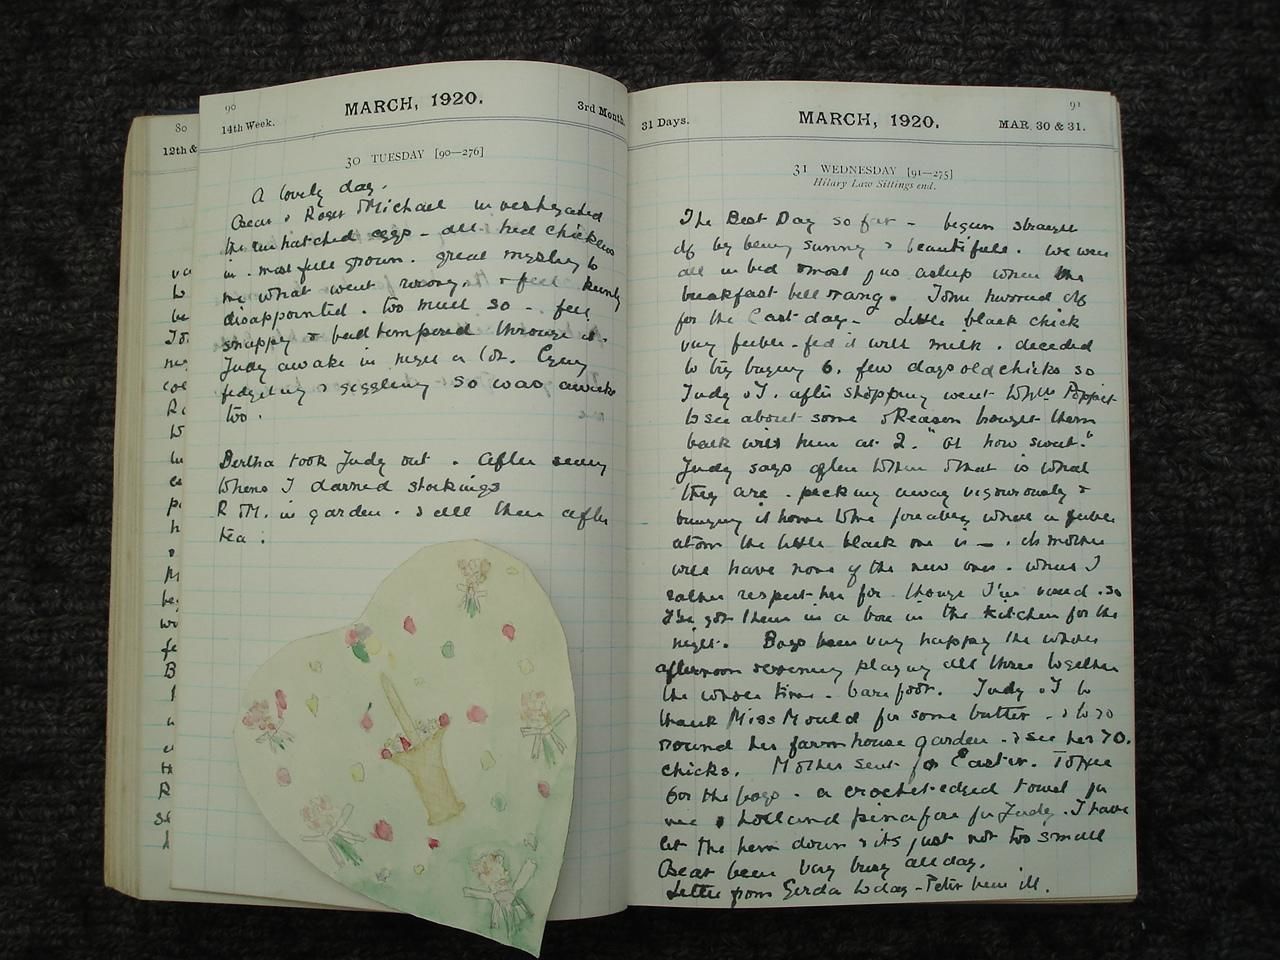 80
12th &
90
MARCH, 1920.
14th Week.
3rd Month.
30 TUESDAY [90—276]
A lovely day.
Bear & Roger Michael investigated
the unhatched eggs – all had chickens
in. most full grown. great mystery to
me what went wrong. & feel keenly
disappointed. too much so – feel
snappy & bad tempered through it.
Judy awake in night a lot.
fidgeting & giggling so was awake
too.
Bertha took Judy out. after
I darned stockings
R & M. in garden. & all then after
tea.
91
31 Days.
MARCH, 1920.
MAR. 30 & 31.
31 WEDNESDAY [91—275]
Hilary Law Sittings end.
The Best Day so far – begun straight
off by being sunny & beautiful. we were
all in bed & most of us asleep when the
breakfast bell rang. Tom hurried off
for the last day – Little black chick
very feeble – fed it with milk. decided
to try buying 6. few days old chicks so
Judy & I. after shopping went to Mrs Poppit
to see about some & Reason brought them
back with him at 2. "oh how sweet."
Judy says often & that is what
they are. pecking away vigourously &
bringing it home to me forcibly what a feeble
atom the little black one is —. its mother
will have none of the new ones. which I
rather respect her for though I'm so
I've got them in a box in the kitchen for the
night. Boys been very happy the whole
afternoon & evening playing all three together
the whole time – bare foot. Judy & I to
thank Miss Mould for some butter – & to go
round her farm house garden – & see her 70.
chicks. Mother sent for Easter. Toffee
for the boys – a crochet-edged towel for
me & holland pinafore for Judy. I have
let the hem down & its just not too small
Bear been very busy all day.
Letter from Gerda today – Peter been ill.